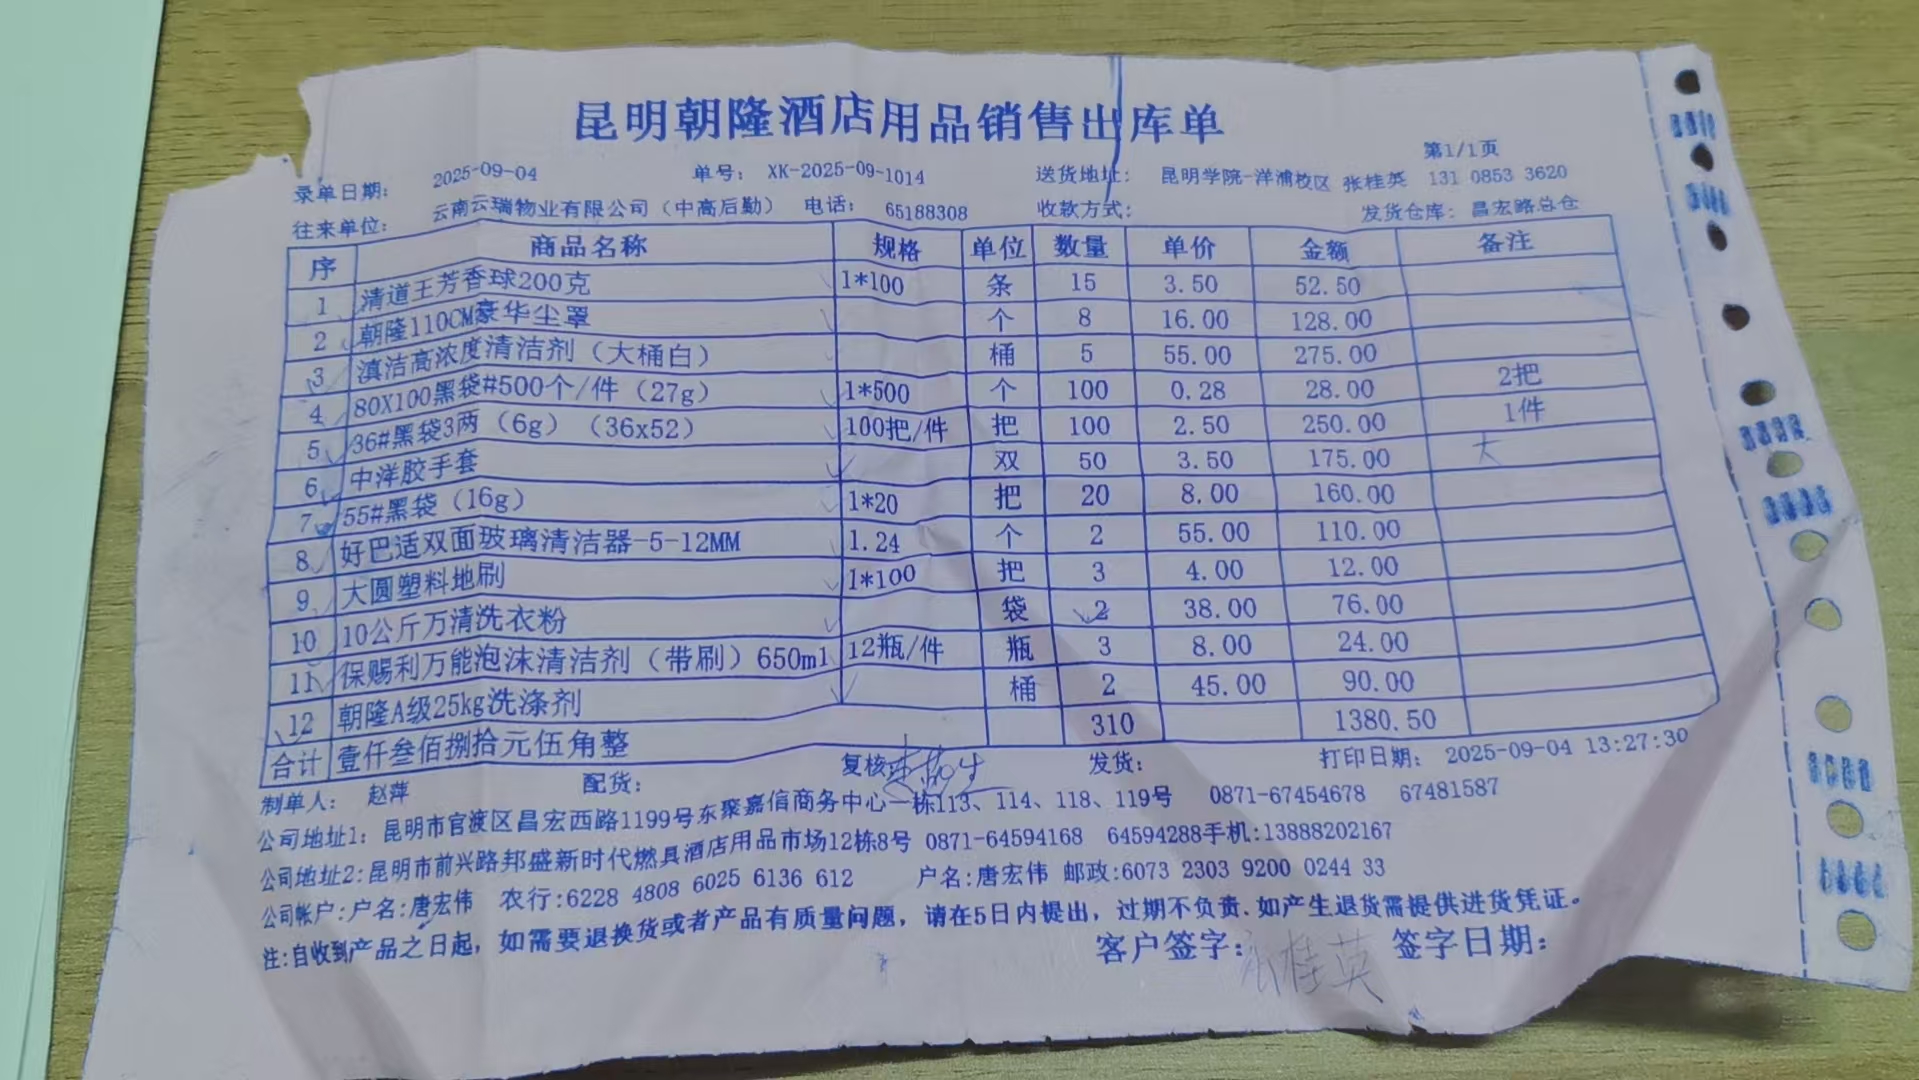 昆明朝隆酒店用品销售出库单
第1/1页
录单日期: 2025-09-04 单号: XK-2025-09-1014 送货地址: 昆明学院-洋浦校区 张桂英 131 0853 3620
往来单位: 云南云瑞物业有限公司（中高后勤） 电话: 65188308 收款方式: 发货仓库: 昌宏路总仓
序 商品名称 规格 单位 数量 单价 金额 备注
1 清道王芳香球200克 1*100 条 15 3.50 52.50
2 朝隆110CM豪华尘罩 个 8 16.00 128.00
3 滇洁高浓度清洁剂（大桶白） 桶 5 55.00 275.00
4 80X100黑袋#500个/件（27g） 1*500 个 100 0.28 28.00 2把
5 36#黑袋3两（6g）（36x52） 100把/件 把 100 2.50 250.00 1件
6 中洋胶手套 双 50 3.50 175.00 大
7 55#黑袋（16g） 1*20 把 20 8.00 160.00
8 好巴适双面玻璃清洁器-5-12MM 1.24 个 2 55.00 110.00
9 大圆塑料地刷 1*100 把 3 4.00 12.00
10 10公斤万清洗衣粉 袋 2 38.00 76.00
11 保赐利万能泡沫清洁剂（带刷）650ml 12瓶/件 瓶 3 8.00 24.00
12 朝隆A级25kg洗涤剂 桶 2 45.00 90.00
合计 壹仟叁佰捌拾元伍角整 310 1380.50
制单人: 赵萍 配货: 复核 发货: 打印日期: 2025-09-04 13:27:30
公司地址1: 昆明市官渡区昌宏西路1199号东聚嘉信商务中心一栋113、114、118、119号 0871-67454678 67481587
公司地址2:昆明市前兴路邦盛新时代燃具酒店用品市场12栋8号 0871-64594168 64594288手机:13888202167
公司帐户:户名:唐宏伟 农行:6228 4808 6025 6136 612 户名:唐宏伟 邮政:6073 2303 9200 0244 33
注:自收到产品之日起，如需要退换货或者产品有质量问题，请在5日内提出，过期不负责.如产生退货需提供进货凭证。
客户签字: 张桂英 签字日期: